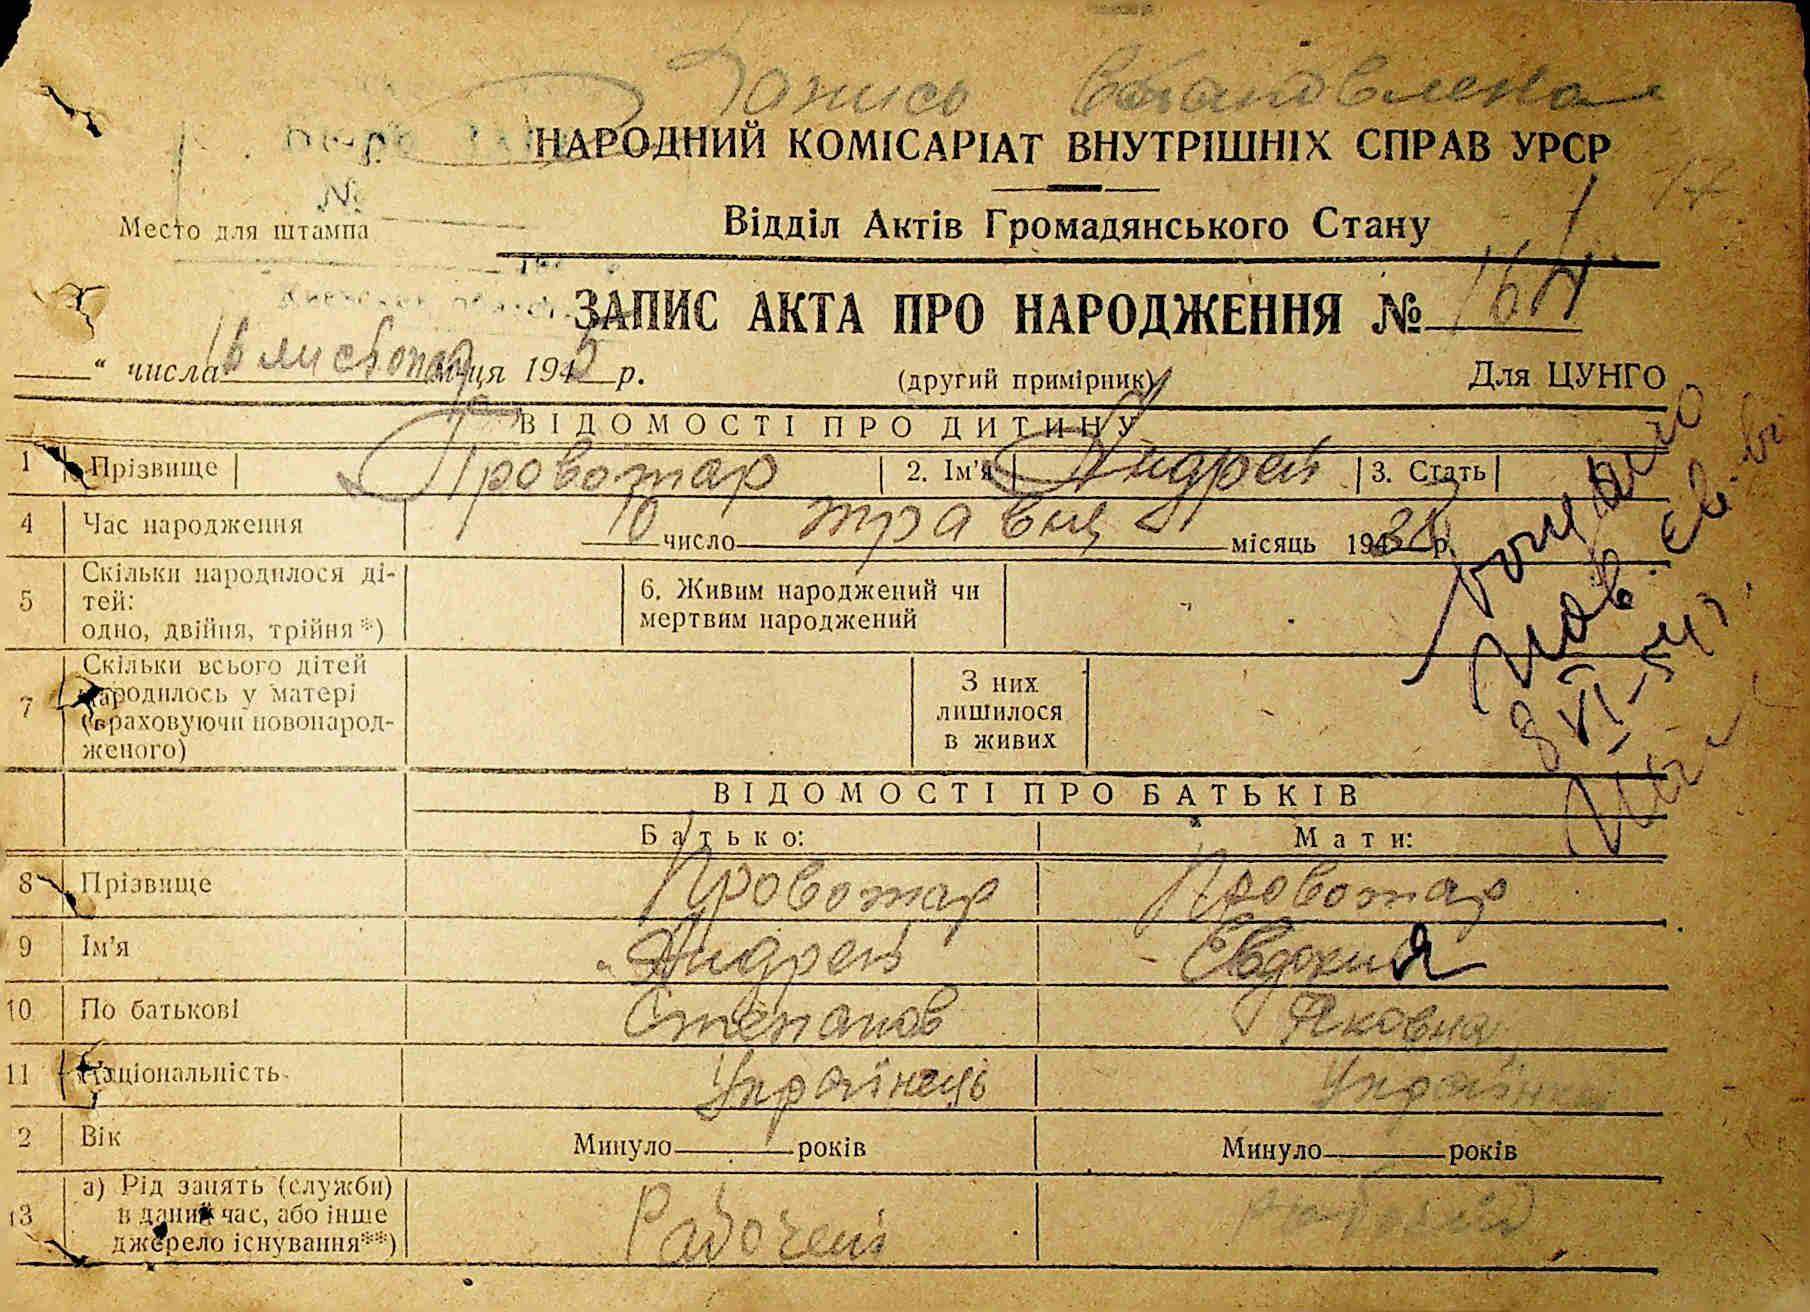 Запись Встановлена
НАРОДНИЙ КОМІСАРІАТ ВНУТРІШНІХ СПРАВ УРСР
17
№
Место для штампа
Відділ Актів Громадянського Стану
ЗАПИС АКТА ПРО НАРОДЖЕННЯ № 164
“ числа листопад місяця 194 р.
(другий примірник)
Для ЦУНГО
ВІДОМОСТІ ПРО ДИТИНУ
1 Прізвище Провотар 2. Ім'я Андрей 3. Стать
4 Час народження 10 число травня місяць 194 38 р.
5 Скільки народилося ді-
тей:
одно, двійня, трійня*)
6. Живим народжений чи
мертвим народжений
7 Скільки всього дітей
народилось у матері
(враховуючи новонарод-
женого)
З них
лишилося
в живих
ВІДОМОСТІ ПРО БАТЬКІВ
Батько: Мати:
8 Прізвище Провотар Провотар
9 Ім'я Андрей Евдокия
10 По батькові Степанов Яковна
11 Національність Українець Українка
2 Вік Минуло років Минуло років
13 а) Рід занять (служби)
в даний час, або інше
джерело існування**)
Рабочей
видано
свів.
8 VI-54